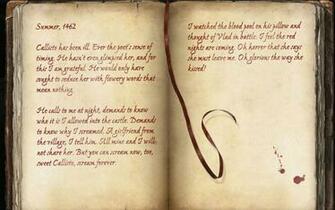 Summer, 1462
Callisto has been ill. Ever the poet's sense of
timing. He hasn't even glimpsed her, and for
this I am grateful. He would only have
sought to seduce her with flowery words that
mean nothing.
He calls to me at night, demands to know
who it is I allowed into the castle. Demands
to know why I screamed. A girlfriend from
the village, I tell him. Ill mine and I will
not share her. But you can scream now, too,
sweet Callisto, scream forever.
I watched the blood pool on his pillow and
thought of Vlad in battle. I feel the red
nights are coming. Oh horror that she says
she must leave me. Oh glorious the way she
kissed?